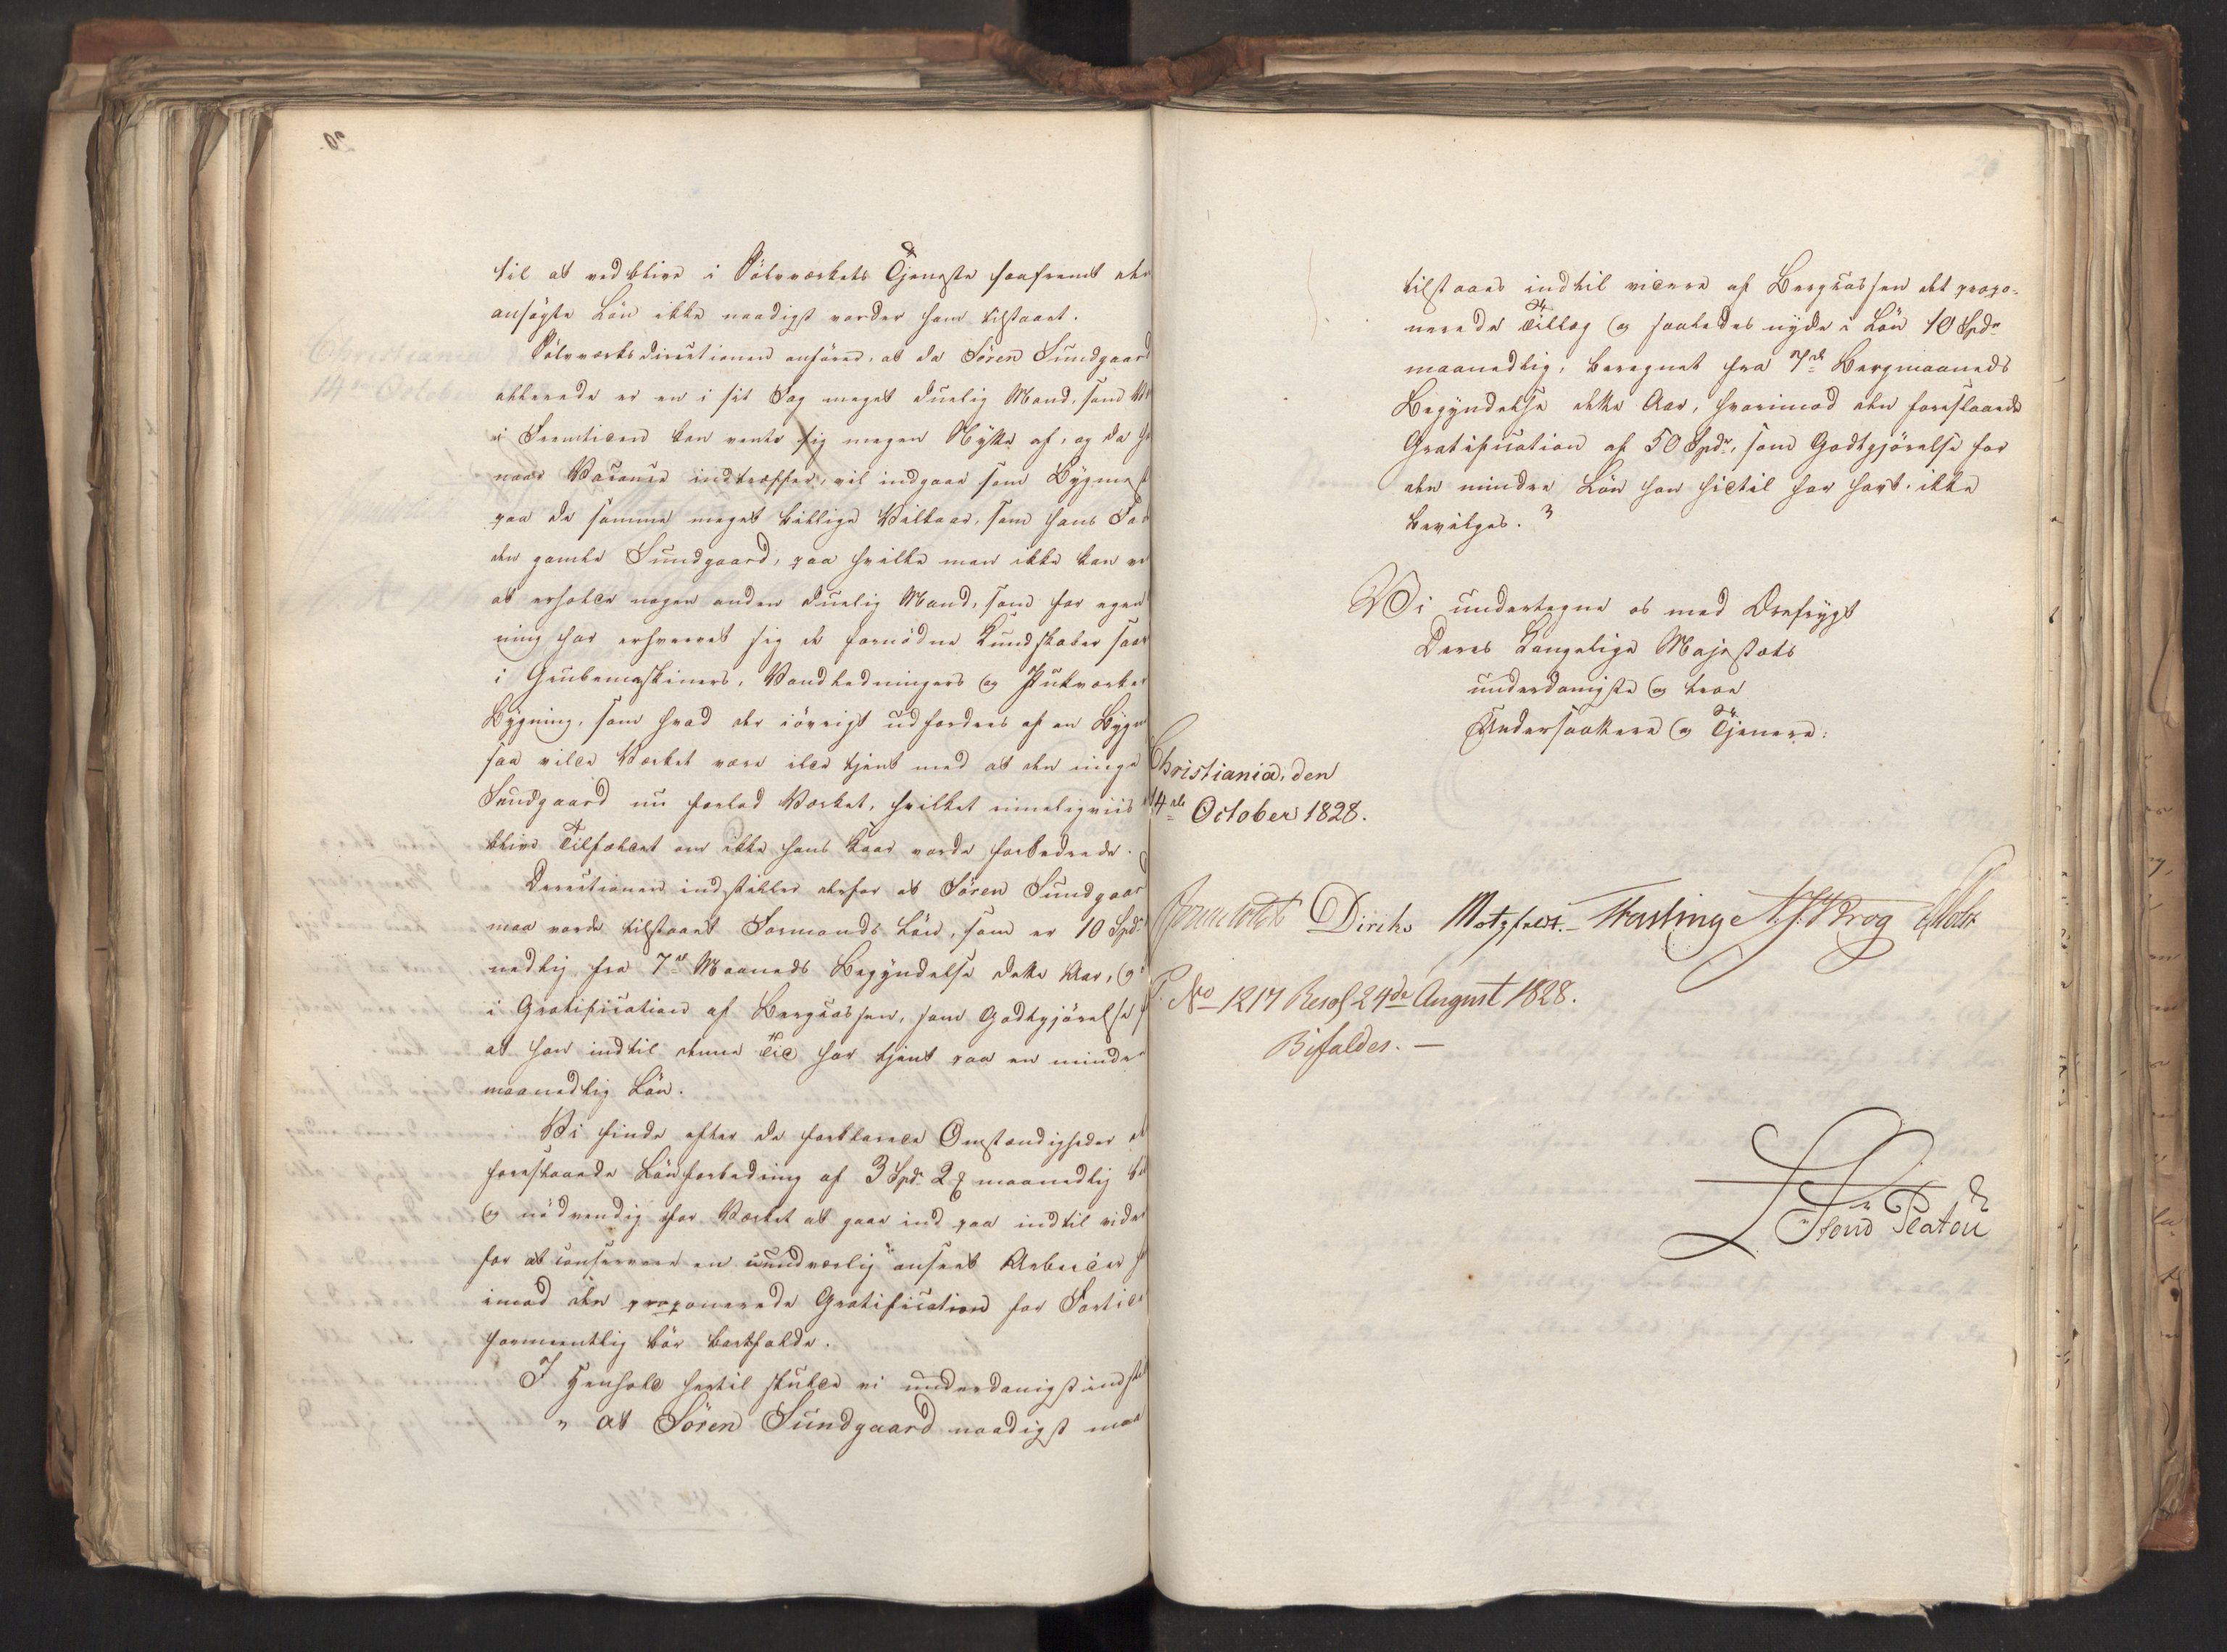 til at vedblive i Sölvværkets Tjeneste saafremt den
ansøgte Lön ikke naadigst vorder ham tilstaaet.
Sölvværksdirectionen anförer, at da Sören Sundgaard
allerede er en i sit Fag meget duelig Mand, som
i Fremtiden kan vente sig megen Nytte af, og da
naar Vacance indtræffer, vil indgaae som Bygmest
paa de samme meget billige Vilkaar, som hans Fad
den gamle Sundgaard, paa hvilke man ikke kan
at erholde nogen anden duelig Mand, som for egen
ning har erhvervet sig de fornödne Kundskaber saav
i Grubemaskiners, Vandledningers og Pukværker
Bygning, som hvad der iövrigt udfordres af en Bygm
saa vilde Værket være ilde tjent med at den unge
Sundgaard nu forlod Værket, hvilket rimeligviis
blive Tilfældet om ikke hans Kaar vorde forbedrede.
Directionen indstiller derfor at Sören Sundgaard
maa vorde tilstaaet Formands Lön, som er 10 Spd
nedlig fra 7de Maaneds Begyndelse dette Aar, og
i Gratification af Bergcassen, som Godtgjörelse f
at han indtil denne Tid har tjent paa en mindre
maanedlig Lön.
Vi finde efter de forklarede Omstændigheder at
foreslaaede Lönforbedring af 3 Spd 2 maanedlig
og nödvendig for Værket at gaae ind paa indtil videre
for at conservere en uundværlig anseet Arbeider
imod den proponerede Gratification for Fortid
formeentlig bör bortfalde.
I Henhold hertil skulde vi underdanigst indstil
" at Sören Sundgaard naadigst maa
20
tilstaaes indtil videre af Bergcassen det propo-
nerede Tillæg og saaledes nyde i Lön 10 Spdr
maanedlig, beregnet fra 7de Bergmaaneds
Begyndelse dette Aar, hvorimod den foreslaaede
Gratification af 50 Spdr, som Godtgjörelse for
den mindre Lön han hidtil har havt, ikke
bevilges."
Vi undertegne os med Ærefrygt
Deres Kongelige Majestæts
underdanigste og troe
Undersaattere og Tjenere:
Christiania, den
14de October 1828.
Diriks Motzfeldt. Fasting N. J. Krog
No 1217 Resol 24de August 1828.
Bifaldes. —
Stoud Platou